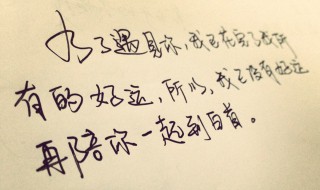 为了遇见你,我已花完了我所
有的好运,所以,我已没有好运
再陪你一起到白首。